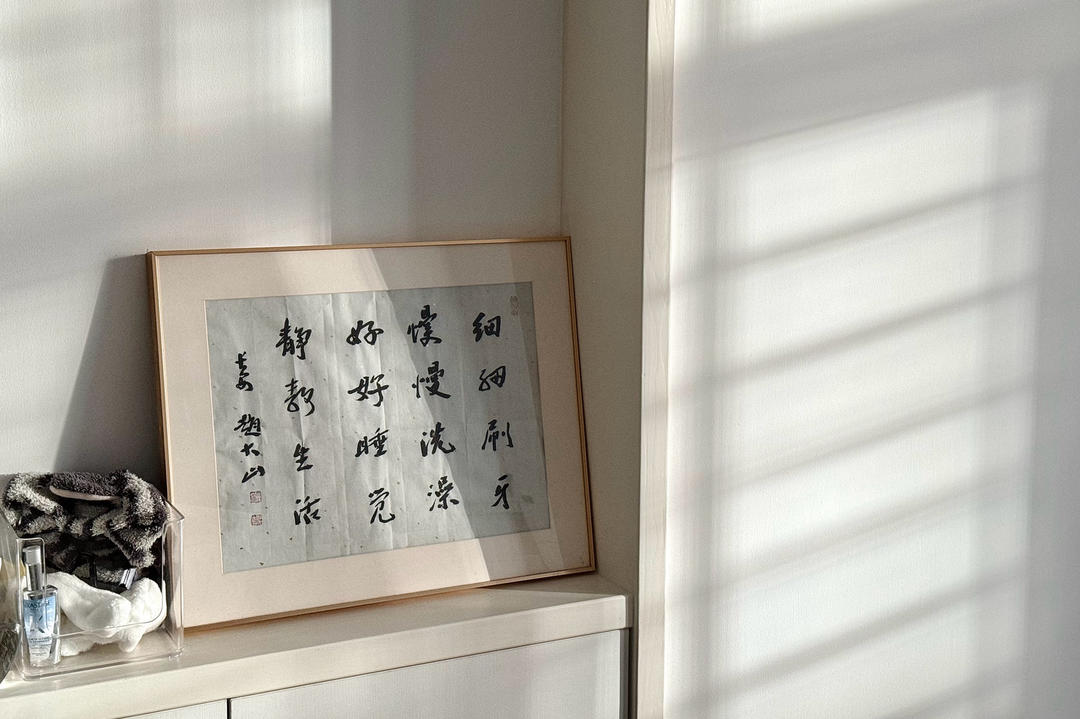 细细刷牙
慢慢洗澡
好好睡觉
静静生活
长安 趙大山